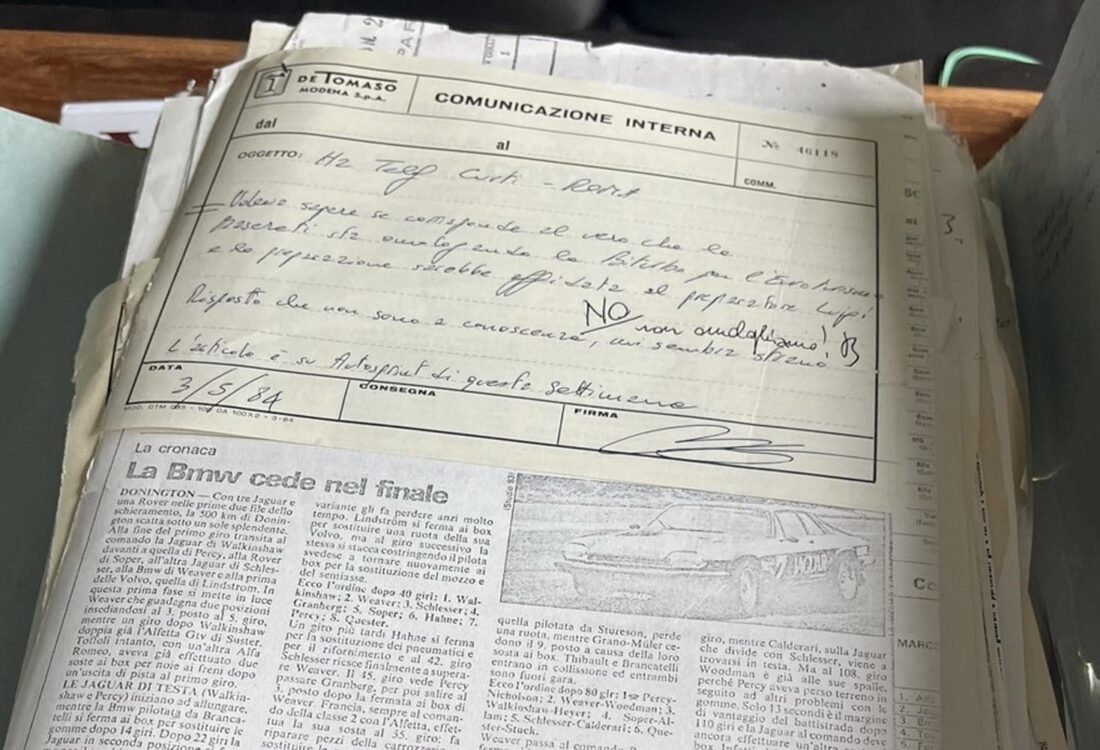 DE TOMASO
MODENA S.p.A.
COMUNICAZIONE INTERNA
№ 46118
dal
al
COMM.
OGGETTO: Ha Telef Curti - ROMA
Voleva sapere se corrisponde al vero che la
Maserati sta omologando la Biturbo per l'Euroturismo
e la preparazione sarebbe affidata al preparatore
NO non omologhiamo!
Risposto che non sono a conoscenza, mi sembra strano.
L'articolo è su Autosprint di questa settimana
DATA
3/5/84
CONSEGNA
FIRMA
La cronaca
La Bmw cede nel finale
DONINGTON — Con tre Jaguar e
una Rover nelle prime due file dello
schieramento, la 500 km di Donin-
gton scatta sotto un sole splendente.
Alla fine del primo giro transita al
comando la Jaguar di Walkinshaw
davanti a quella di Percy, alla Rover
di Soper, all'altra Jaguar di Schles-
ser, alla Bmw di Weaver e alla prima
delle Volvo, quella di Lindstrom. In
questa prima fase si mette in luce
Weaver che guadagna due posizioni
insediandosi al 3. posto al 5. giro,
mentre un giro dopo Walkinshaw
doppia già l'Alfetta Gtv di Soster
Toffoli intanto, con un'altra Alfa
Romeo, aveva già effettuato due
soste ai box per noie ai freni dopo
un'uscita di pista al primo giro.
LE JAGUAR DI TESTA (Walkin-
shaw e Percy) iniziano ad allungare,
mentre la Bmw pilotata da Branca-
telli si ferma ai box per sostituire le
gomme dopo 14 giri. Dopo 22 giri la
Jaguar in seconda posizione
variante gli fa perdere anzi molto
tempo. Lindström si ferma ai box
per sostituire una ruota della sua
Volvo, ma al giro successivo la
stessa si stacca costringendo il pilota
svedese a tornare nuovamente ai
box per la sostituzione del mozzo e
del semiasse.
Ecco l'ordine dopo 40 giri: 1. Wal-
kinshaw; 2. Weaver; 3. Schlesser; 4.
Granberg; 5. Soper; 6. Hahne; 7.
Percy; 8. Quester.
Un giro più tardi Hahne si ferma
per la sostituzione dei pneumatici e
per il rifornimento e al 42. giro
Schlesser riesce finalmente a supera-
re Weaver. Il 45. giro vede Percy
passare Granberg, per poi salire al
3. posto dopo la fermata ai box di
Weaver. Francia, sempre al coman-
do della classe 2 con l'Alfetta, effet-
tua la sua sosta al 55. giro, fa
riparare pezzi della carrozzeria
(Studio 83)
JAGUAR
quella pilotata da Stureson, perde
una ruota, mentre Grano-Müler ce-
dono il 9. posto a causa della loro
sosta ai box. Thibault e Brancatelli
entrano in collisione ed entrambi
sono fuori gara.
Ecco l'ordine dopo 80 giri: 1. Percy-
Nicholson; 2. Weaver-Woodman; 3.
Walkinshaw-Heyer; 4. Soper-Al-
lam; 5. Schlesser-Calderari; 6. Que-
ster-Stuck.
Weaver passa al comando
giro, mentre Calderari, sulla Jaguar
che divide con Schlesser, viene a
trovarsi in testa. Ma al 103. giro
Woodman è già alle sue spalle,
perché Percy aveva perso terreno in
seguito ad altri problemi con le
gomme. Solo 13 secondi è il margine
di vantaggio del battistrada dopo
110 giri e la Jaguar al comando deve
ancora effettuare un'altra